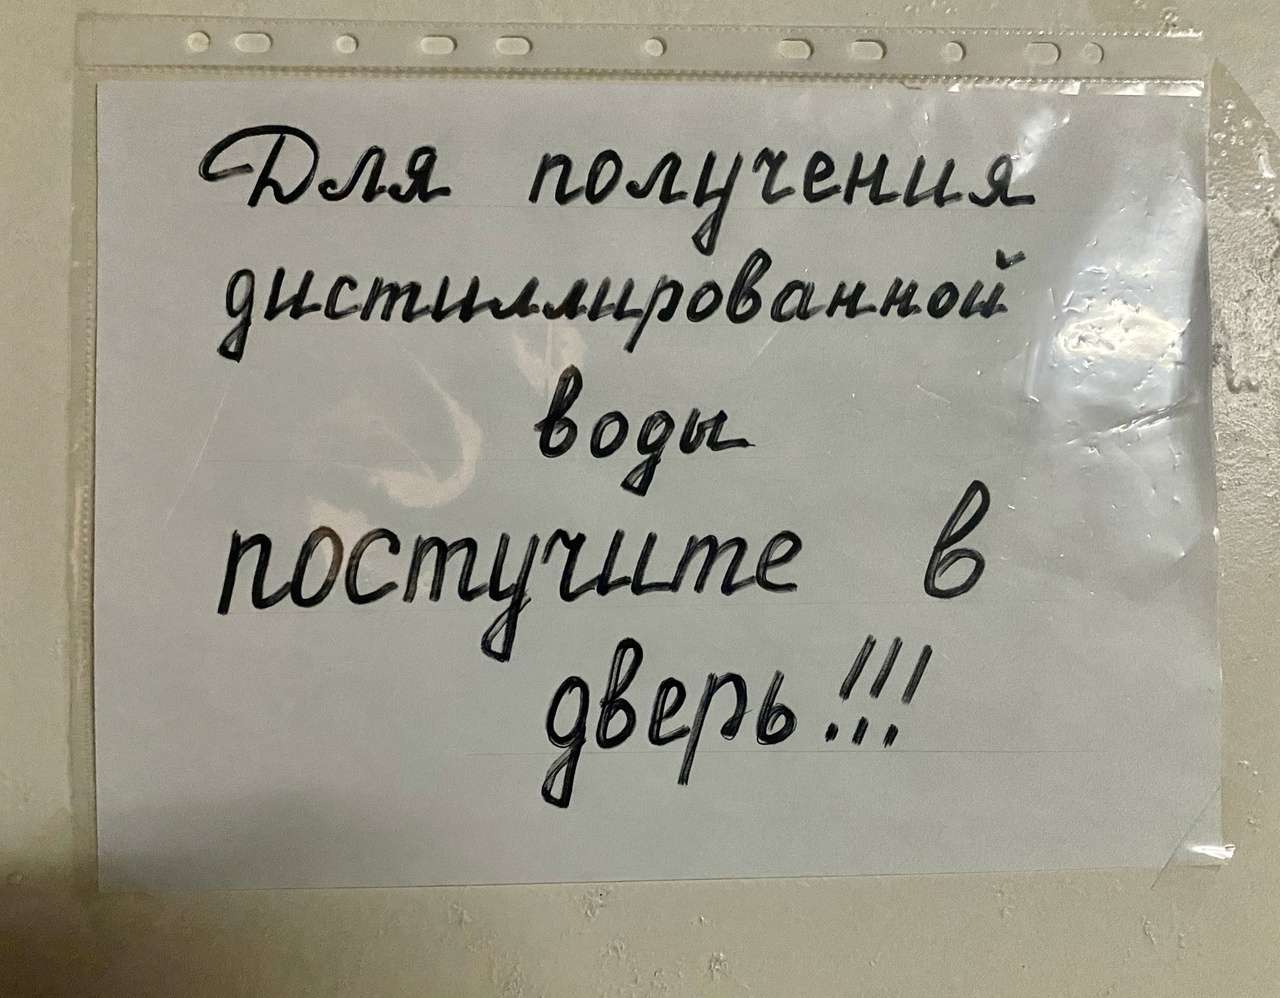 Для получения
дистиллированной
воды
постучите в
дверь!!!